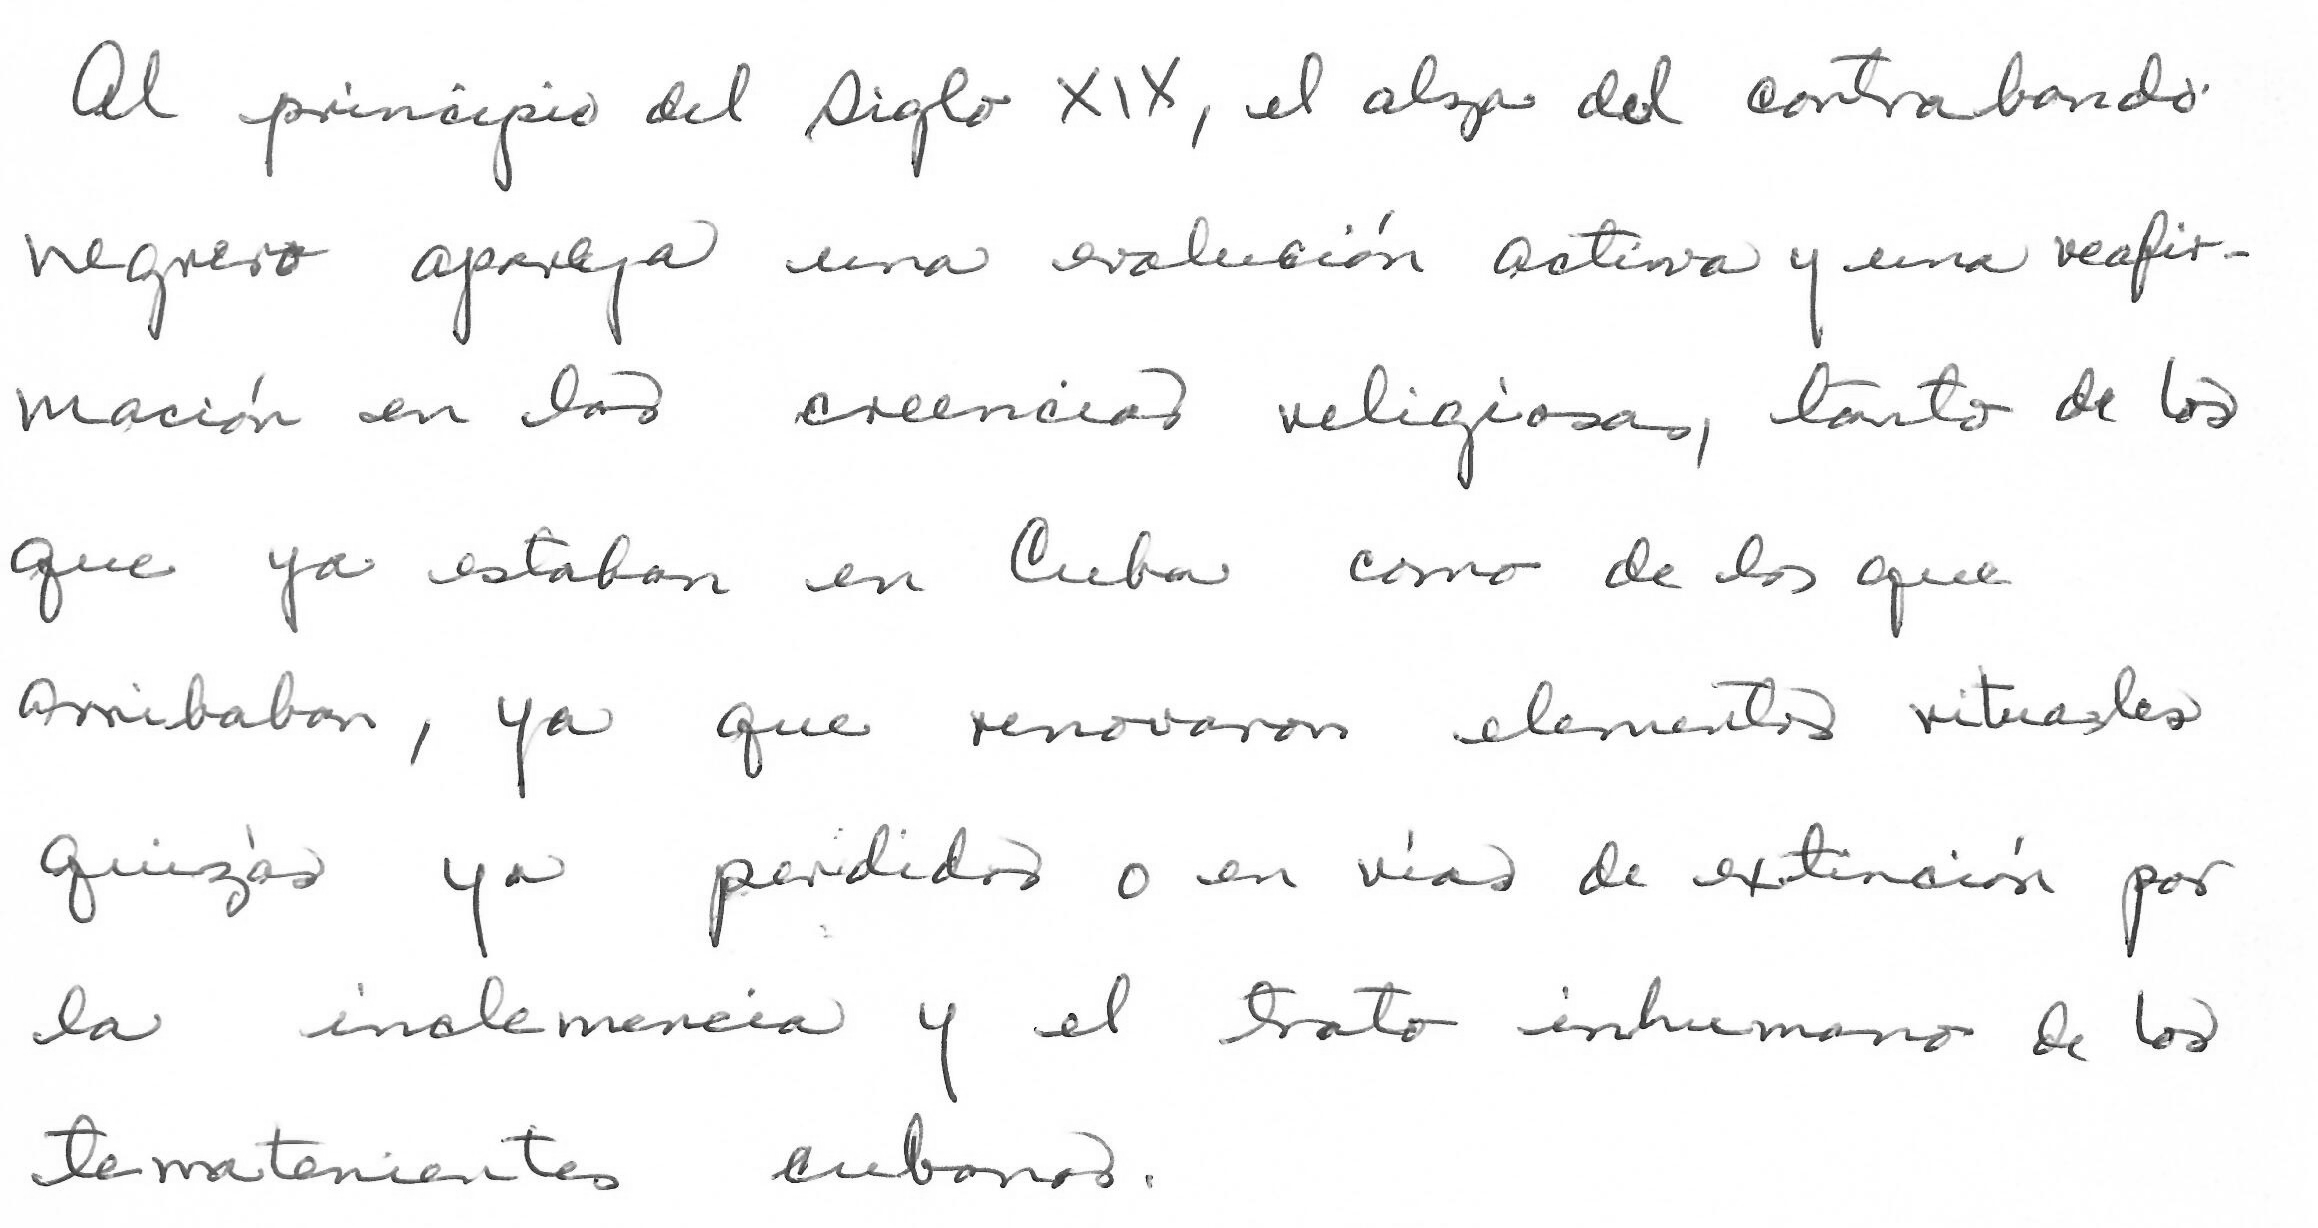 Al principio del siglo XIX, el alza del contrabando
negrero apareja una evolución activa y una reafir-
mación en las creencias religiosas, tanto de los
que ya estaban en Cuba como de los que
arribaban, ya que renovaron elementos rituales
quizás ya perdidos o en vías de extinción por
la inclemencia y el trato inhumano de los
terratenientes cubanos.